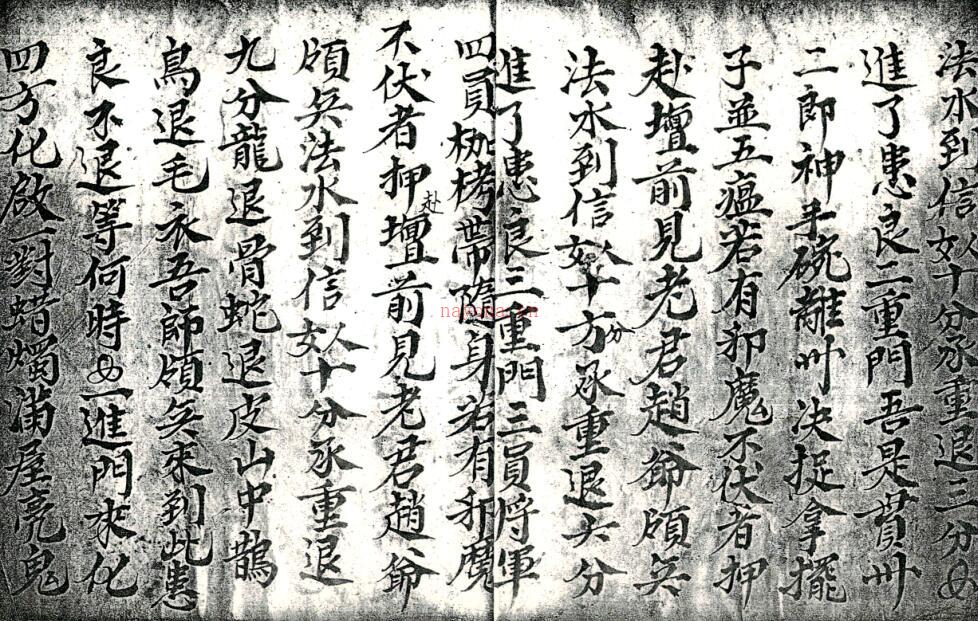 法水到信人女十分承重退三分
進了患良二重門吾是貫州
二郎神手碗離州决捉拿擺
子並五瘟若有邪魔不伏者押
赴壇前見老君趙爺頒兵
法水到信人女十方分承重退六分
進了患良三重門三員將軍
四員枷栲帶隨身若有邪魔
不伏者押赴壇前見老君趙爺
頒兵法水到信人女十分承重退
九分龍退骨蛇退皮山中鵲
鳥退毛衣吾師頒兵來到此患
良不退等何時一進門來化
四方化啟一對蜡燭滿屋亮鬼